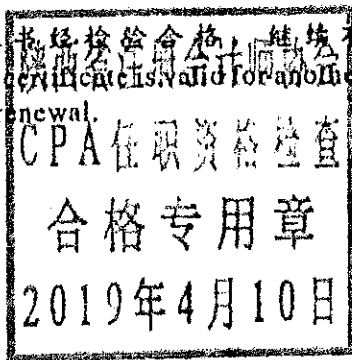 书经检验合格，继续有
certificate is valid for another
renewal.
CPA任职资格检查
合格专用章
2019年4月10日